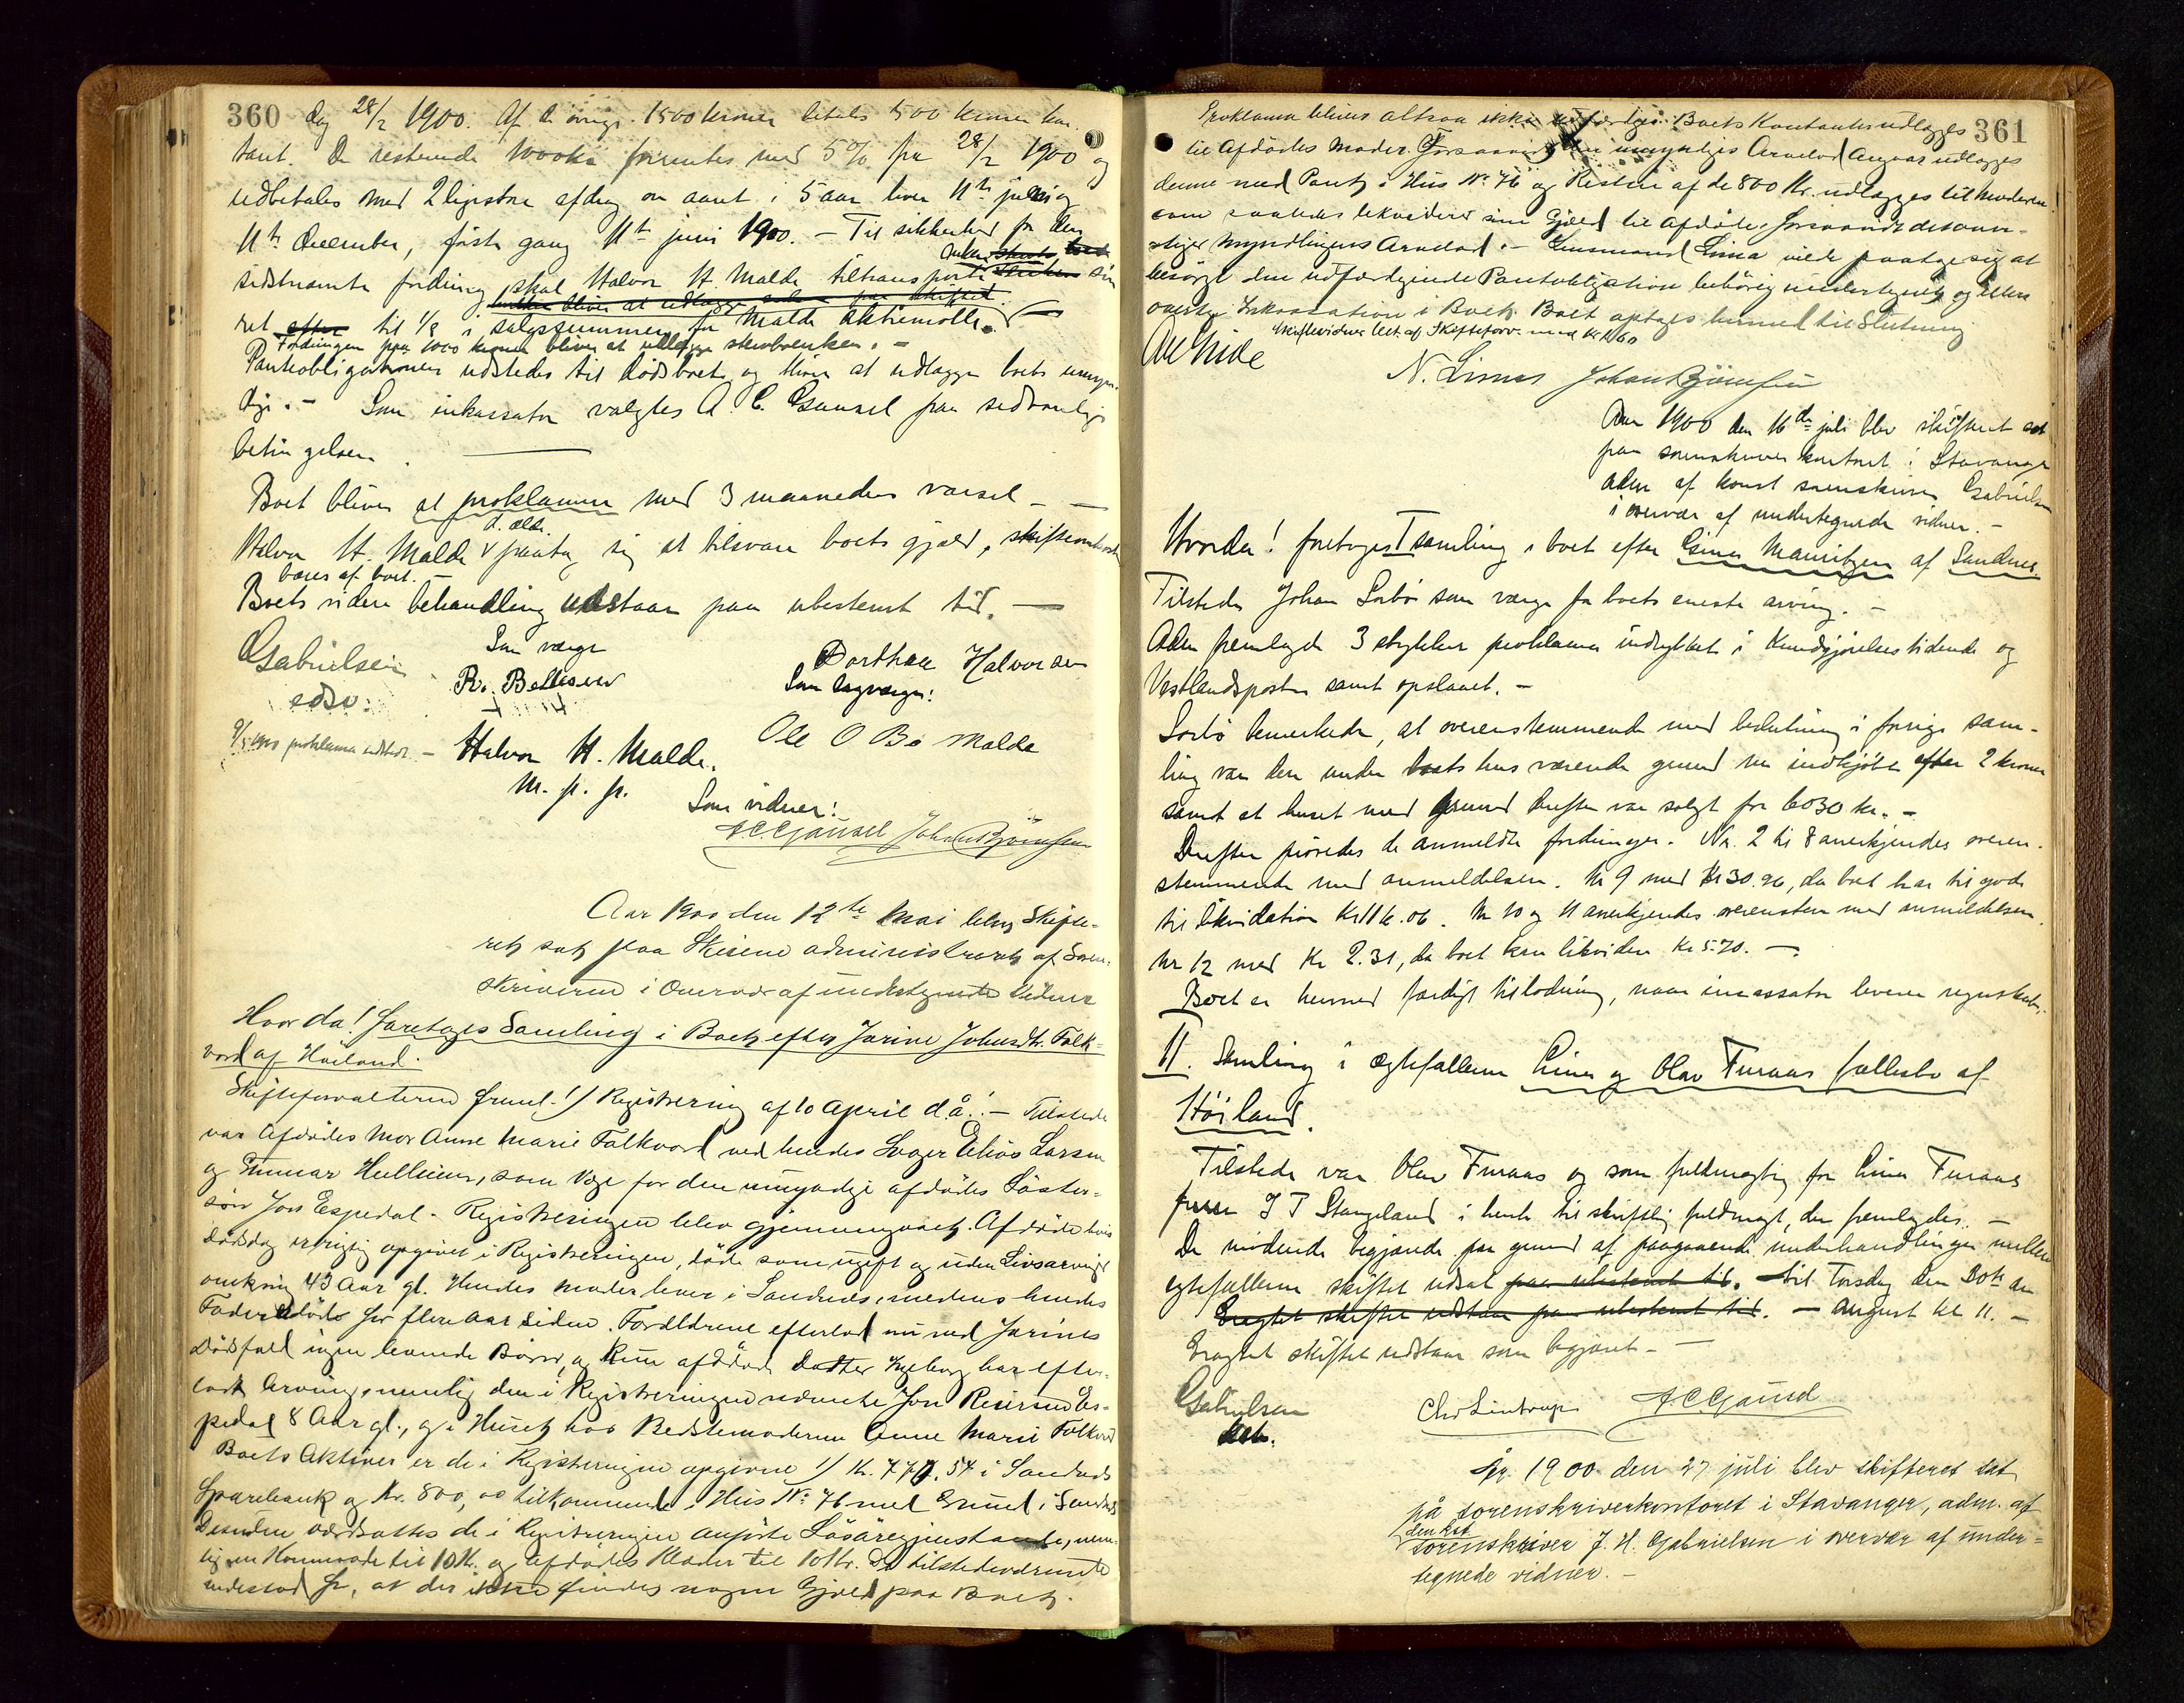 360 dag 28/2 1900. Af de øvrige 1500 kroner betales 500 kroner kon-
tant. De resterende 1000 kr forrentes med 5% fra 28/2 1900 og
udbetales med 2 ligestore afdrag om aaret i 5 aar hver 11te juni og
11te december, første gang 11te juni 1900. — Til sikkerhed for den
sidstnævnte fordring skal Halvor H. Malde tiltransportere sin
ret efter til 1/8 i salgssummen for Malde Aktiemølle.
Fordringen paa 1000 kroner bliver at udlægge
Panteobligationen udstedes til dødsboet og bliver at udlægge boets umyn-
dige. — Som inkassator valgtes A. C. Gausel paa sedvanlige
betingelser.
Boet bliver at proklamere med 3 maaneders varsel —
Halvor H. Malde d. ældre paatog sig at tilsvare boets gjæld,
bæres af boet. —
Boets videre behandling udstaar paa ubestemt tid. —
Gabrielsen
edsv:
Som værge
R. Bellesen
Dorthea Halvorsen
Som lagværge:
Ole O Bø Malde
proklama udstedt —
Halvor H. Malde.
m. p. p.
Som vidner:
A.C. Gausel Johan Bjørnsen
Aar 1900 den 12te Mai blev Skifte-
ret sat paa Skeiene administreret af Soren-
skriveren i Overvær af undertegnede Vidner
Hvorda! foretoges Samling i Boet efter Jorine Johnsdtr. Folk-
vord af Høiland.
Skifteforvalteren freml. 1) Registrering af 10 April d.å. — Tilstede
var Afdødes Mor Anne Marie Folkvord ved hendes Svoger Elias Larsen
og Gunnar Hulleim, som Vge for den umyndige afdødes Søster-
søn Jon Espedal. Registreringen blev gjennemgaaet. Afdøde hvis
Dødsdag er rigtig opgivet i Registreringen, døde som ugift og uden Livsarvinger
omkring 43 Aar gl. Hendes Moder lever i Sandnes, medens hendes
Fader døde for flere Aar siden. Forældrene efterlod nu ved Jorines
Dødsfald ingen levende Børn, og kun afdøde Datter Ingeborg har efter-
ladt Arving, nemlig den i Registreringen nævnte Jon Es-
pedal 8 Aar gl., og i Huset hos Bedstemoderen Anne Marie Folkvord
Boets Aktiver er de i Registreringen opgivne 1) Kr. 777,54 i Sandnes
Sparebank og Kr. 800,00 tilkommende i Hus No 76 med Grund i Sandnes
Desuden værdsattes de i Registreringen anførte Løsøregjenstande, nem-
lig en Kommode til 10 Kr. og Afdødes Klæder til 10 Kr. De tilstedeværende
indestod for, at der ikke findes nogen Gjæld paa Boet.
361
Proklama bliver altsaa ikke at udfærdige. Boets Kontanter udlægges
til Afdødes Moder. Forsaavidt den umyndiges Arvelod Angaar udlægges
denne med Pant i Hus No 76 og Resten af de 800 Kr. udlægges til Moderen
som saaledes likviderer sin Gjæld til Afdøde, forsaavidt den over-
stiger Myndlingens Arvelod. — Lensmand Lima vilde paatage sig at
besørge den udfærdigende Pantobligation behørig undertegnet og ellers
overtage Inkassation i Boet. Boet optages hermed til Slutning
Skiftevidner bet. af Skifteforv. med Kr 1.60
N. Lima Johan Bjørnsen
Aar 1900 den 16de juli blev skifteret sat
paa sorenskriverkontoret i Stavanger
adm. af konst. sorenskriver Gabrielsen
i overvær af undertegnede vidner. —
Hvorda! foretoges I samling i boet efter Gina Mauritzen af Sandnes.
Tilstede Johan Sørbø som værge for boets eneste arving. —
Adm. fremlagde 3 stykker proklama indrykket i Kundgjørelsestidende og
Vestlandsposten samt opslaaet. —
Sørbø bemerkede, at overensstemmende med beslutning i forrige sam-
ling var den under boets hus værende grund nu indkjøbt efter 2 kroner
samt at huset med grund derefter var solgt for 6030 kr. —
Derefter prøvedes de anmeldte fordringer. Nr. 2 til 8 anerkjendes overen-
stemmende med anmeldelsen. Nr 9 med Kr 30.96, da boet har til gode
til likvidation Kr 116.06. Nr 10 og 11 anerkjendes overensstem med anmeldelsen
Nr 12 med Kr 2.31, da boet kan likvidere Kr 5.70. —
Boet er hermed færdigt til lodning, naar incassator leverer regnskab.
II. Samling i ægtefællerne Lina og Olav Furaas fællesbo af
Høiland.
Tilstede var Olav Furaas og som fuldmægtig for Lina Furaas
J T Stangeland i henh. til skriftlig fuldmagt, der fremlagdes. —
De mødende begjærede paa grund af paagaaende underhandlinger mellem
egtefællerne skiftet udsat paa ubestemt tid. — til Torsdag den 30te
Eragtet skiftet udstaar paa ubestemt tid. — August kl 11. —
Eragtet skiftet udstaar som begjæret —
Gabrielsen
kst.
Chr Lintrup A.C. Gausel
År 1900 den 27 juli blev skifteret sat
på sorenskriverkontoret i Stavanger, adm. af
den kst
sorenskriver J. H. Gabrielsen i overvær af under-
tegnede vidner. —